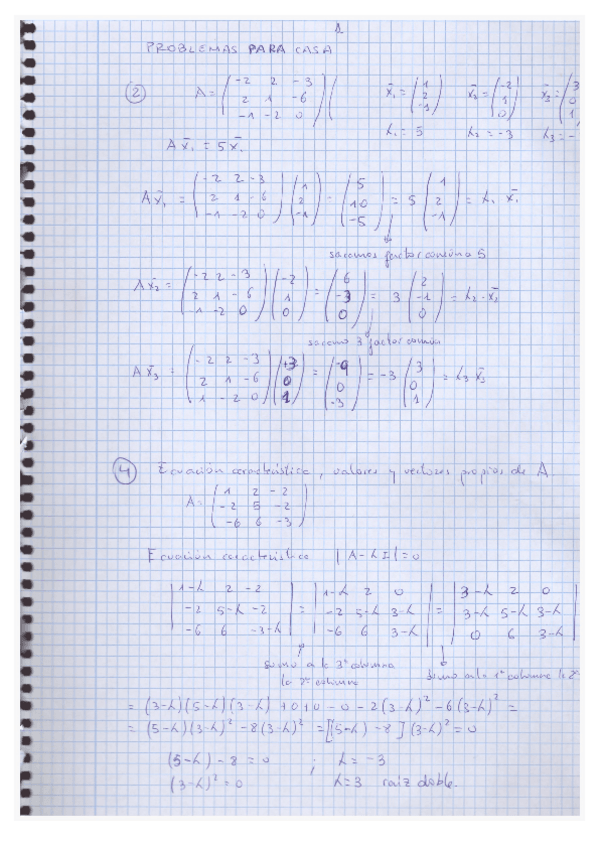 1
PROBLEMAS PARA CASA
② A = (-2 2 -3 / 2 1 -6 / -1 -2 0) ( x̄₁ = (1 / 2 / -1) x̄₂ = (-2 / 1 / 0) x̄₃ = (3 / 0 / 1
λ₁ = 5 λ₂ = -3 λ₃ = -
A x̄₁ = 5x̄₁
A x̄₁ = (-2 2 -3 / 2 1 -6 / -1 -2 0) (1 / 2 / -1) = (5 / 10 / -5) = 5 (1 / 2 / -1) = λ₁ x̄₁
sacamos factor común a 5
A x̄₂ = (-2 2 -3 / 2 1 -6 / -1 -2 0) (-2 / 1 / 0) = (6 / -3 / 0) = 3 (2 / -1 / 0) = λ₂ · x̄₂
sacamo 3 factor común
A x̄₃ = (-2 2 -3 / 2 1 -6 / 1 -2 0) (+3 / 0 / 1) = (-9 / 0 / -3) = -3 (3 / 0 / 1) = λ₃ x̄₃
④ Ecuación característica, valores y vectores propios de A
A = (1 2 -2 / -2 5 -2 / -6 6 -3)
Ecuación característica |A - λI| = 0
|1-λ 2 -2 / -2 5-λ -2 / -6 6 -3-λ| = |1-λ 2 0 / -2 5-λ 3-λ / -6 6 3-λ| = |3-λ 2 0 / 3-λ 5-λ 3-λ / 0 6 3-λ|
sumo a la 3ª columna la 2ª columna
sumo a la 1ª columna la 2ª
= (3-λ)(5-λ)(3-λ) + 0 + 0 - 0 - 2(3-λ)² - 6(3-λ)² =
= (5-λ)(3-λ)² - 8(3-λ)² = [(5-λ) - 8] (3-λ)² = 0
(5-λ) - 8 = 0 ; λ = -3
(3-λ)² = 0 λ = 3 raiz doble.